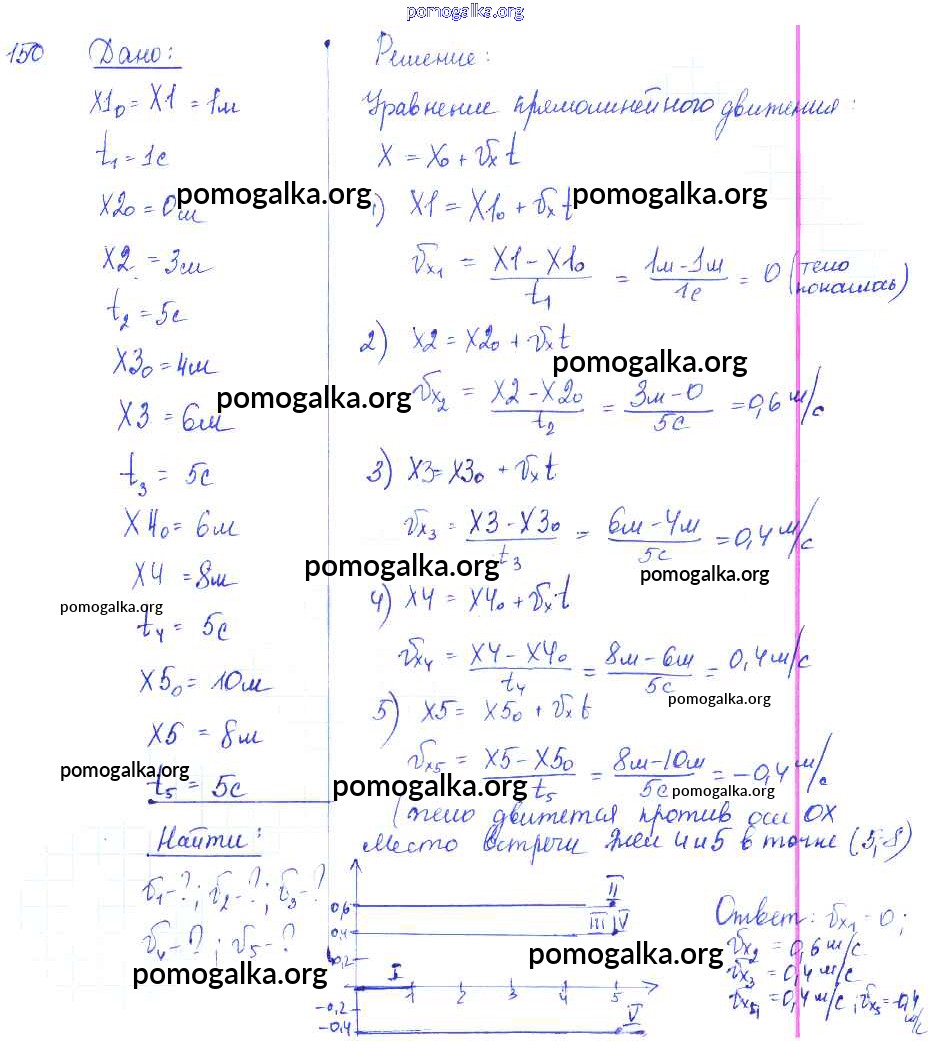 pomogalka.org
150 Дано:
X1₀ = X1 = 1м
t₁ = 1с
X2₀ = 0м
X2 = 3м
t₂ = 5с
X3₀ = 4м
X3 = 6м
t₃ = 5с
X4₀ = 6м
X4 = 8м
t₄ = 5с
X5₀ = 10м
X5 = 8м
t₅ = 5с
Найти:
v₁-?; v₂-?; v₃-?
v₄-?; v₅-?
Решение:
Уравнение прямолинейного движения:
X = X₀ + vₓt
1) X1 = X1₀ + vₓt
vₓ₁ = (X1 - X1₀)/t₁ = (1м - 1м)/1с = 0 (тело покоилось)
2) X2 = X2₀ + vₓt
vₓ₂ = (X2 - X2₀)/t₂ = (3м - 0)/5с = 0,6 м/с
3) X3 = X3₀ + vₓt
vₓ₃ = (X3 - X3₀)/t₃ = (6м - 4м)/5с = 0,4 м/с
4) X4 = X4₀ + vₓt
vₓ₄ = (X4 - X4₀)/t₄ = (8м - 6м)/5с = 0,4 м/с
5) X5 = X5₀ + vₓt
vₓ₅ = (X5 - X5₀)/t₅ = (8м - 10м)/5с = -0,4 м/с
(тело движется против оси OX
место встречи тел 4 и 5 в точке (5; 8)
0,6 II
0,4 III IV
0,2
I
1 2 3 4 5
-0,2
-0,4 V
Ответ: vₓ₁ = 0;
vₓ₂ = 0,6 м/с
vₓ₃ = 0,4 м/с
= 0,4 м/с; vₓ₅ = -0,4 м/с
pomogalka.org
pomogalka.org
pomogalka.org
pomogalka.org
pomogalka.org
pomogalka.org
pomogalka.org
pomogalka.org
pomogalka.org
pomogalka.org
pomogalka.org
pomogalka.org
pomogalka.org